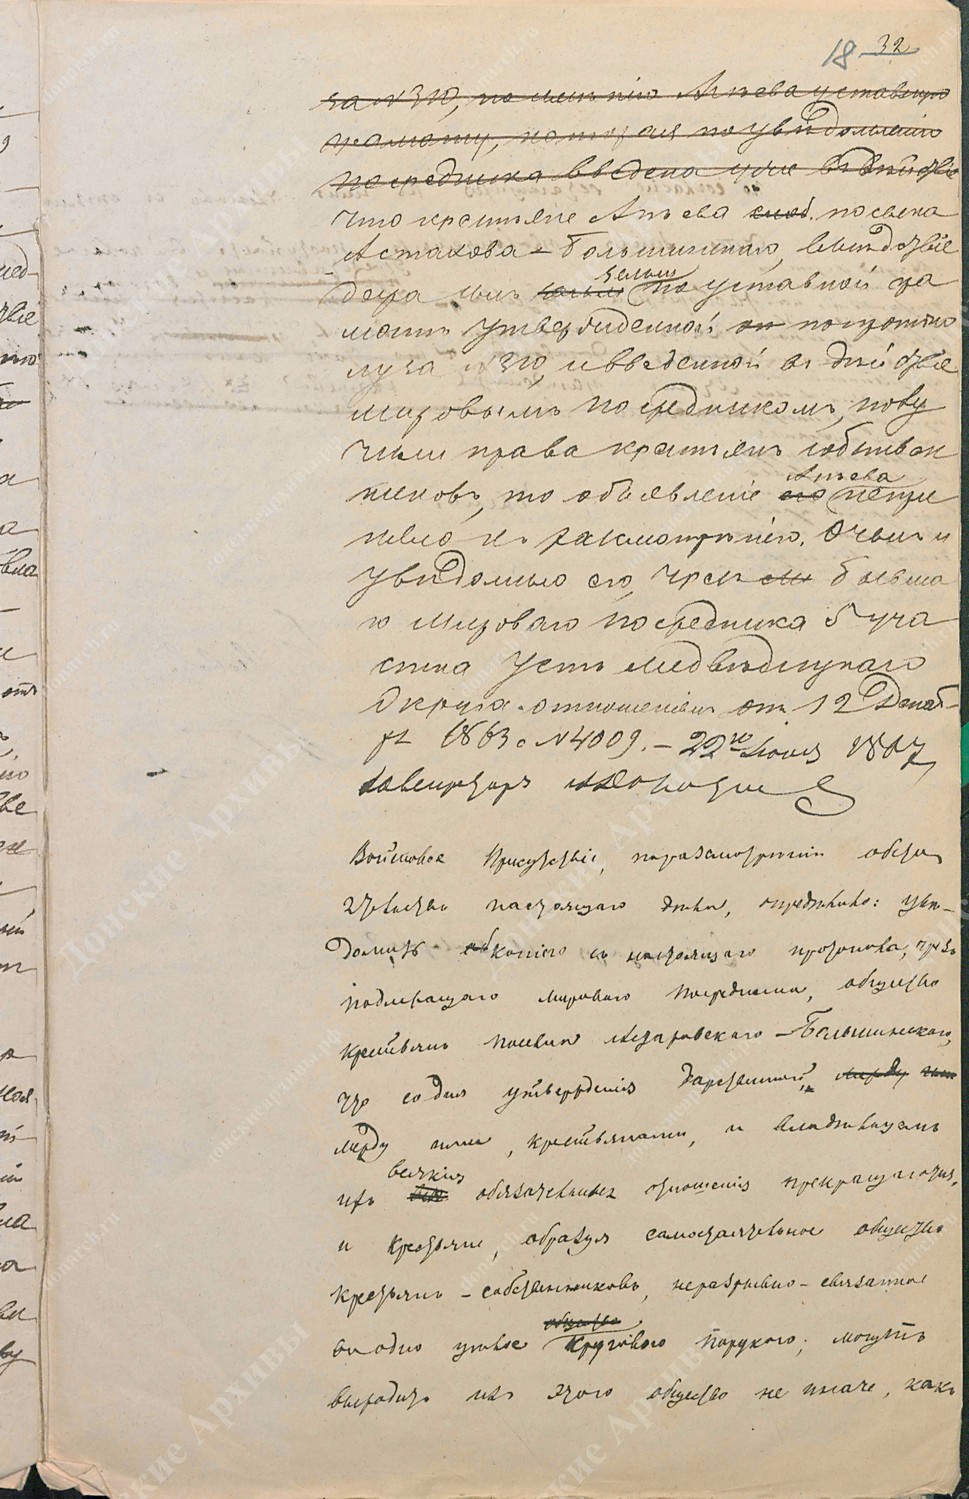 18 32
за №310, по имѣнію Агѣева уставную
грамату, которая по увѣдомленію
посредника введена уже въ дѣйствіе
что крестьяне Агѣева слоб. поселка
Астахова-Большинскаго, вслѣдствіе
дара имъ земли по уставной гра
мотѣ утвержденной он по
за №310, и введенной въ дѣйствіе
мировымъ посредникомъ, полу
чили права крестьянъ собствен
никовъ, то объявленіе его Агѣева
къ разсмотрѣнію. О чемъ и
увѣдомлено его, чрезъ бывша
го мироваго посредника 5 уча
стка Усть Медвѣдицкаго
Округа отношеніемъ отъ 12 Декаб-
ря 1863 г. №4009. – 22го Іюня 1867
Войсковое Присутствіе, по разсмотрѣніи обсто
ятельствъ настоящаго дѣла, опредѣлило: увѣ-
домить копіею съ настоящаго протокола, чрезъ
подлежащаго мироваго посредника, общество
крестьянъ поселка -Большинскаго,
что со дня утвержденія дарственной,
между ними, крестьянами, и владѣльцемъ
ихъ всякія обязательныя отношенія прекращаются,
и крестьяне, образуя самостоятельное общество
крестьянъ-собственниковъ, неразрывно-связанное
въ одно цѣлое общество круговою порукою, могутъ
выходить изъ этого общества не иначе, какъ